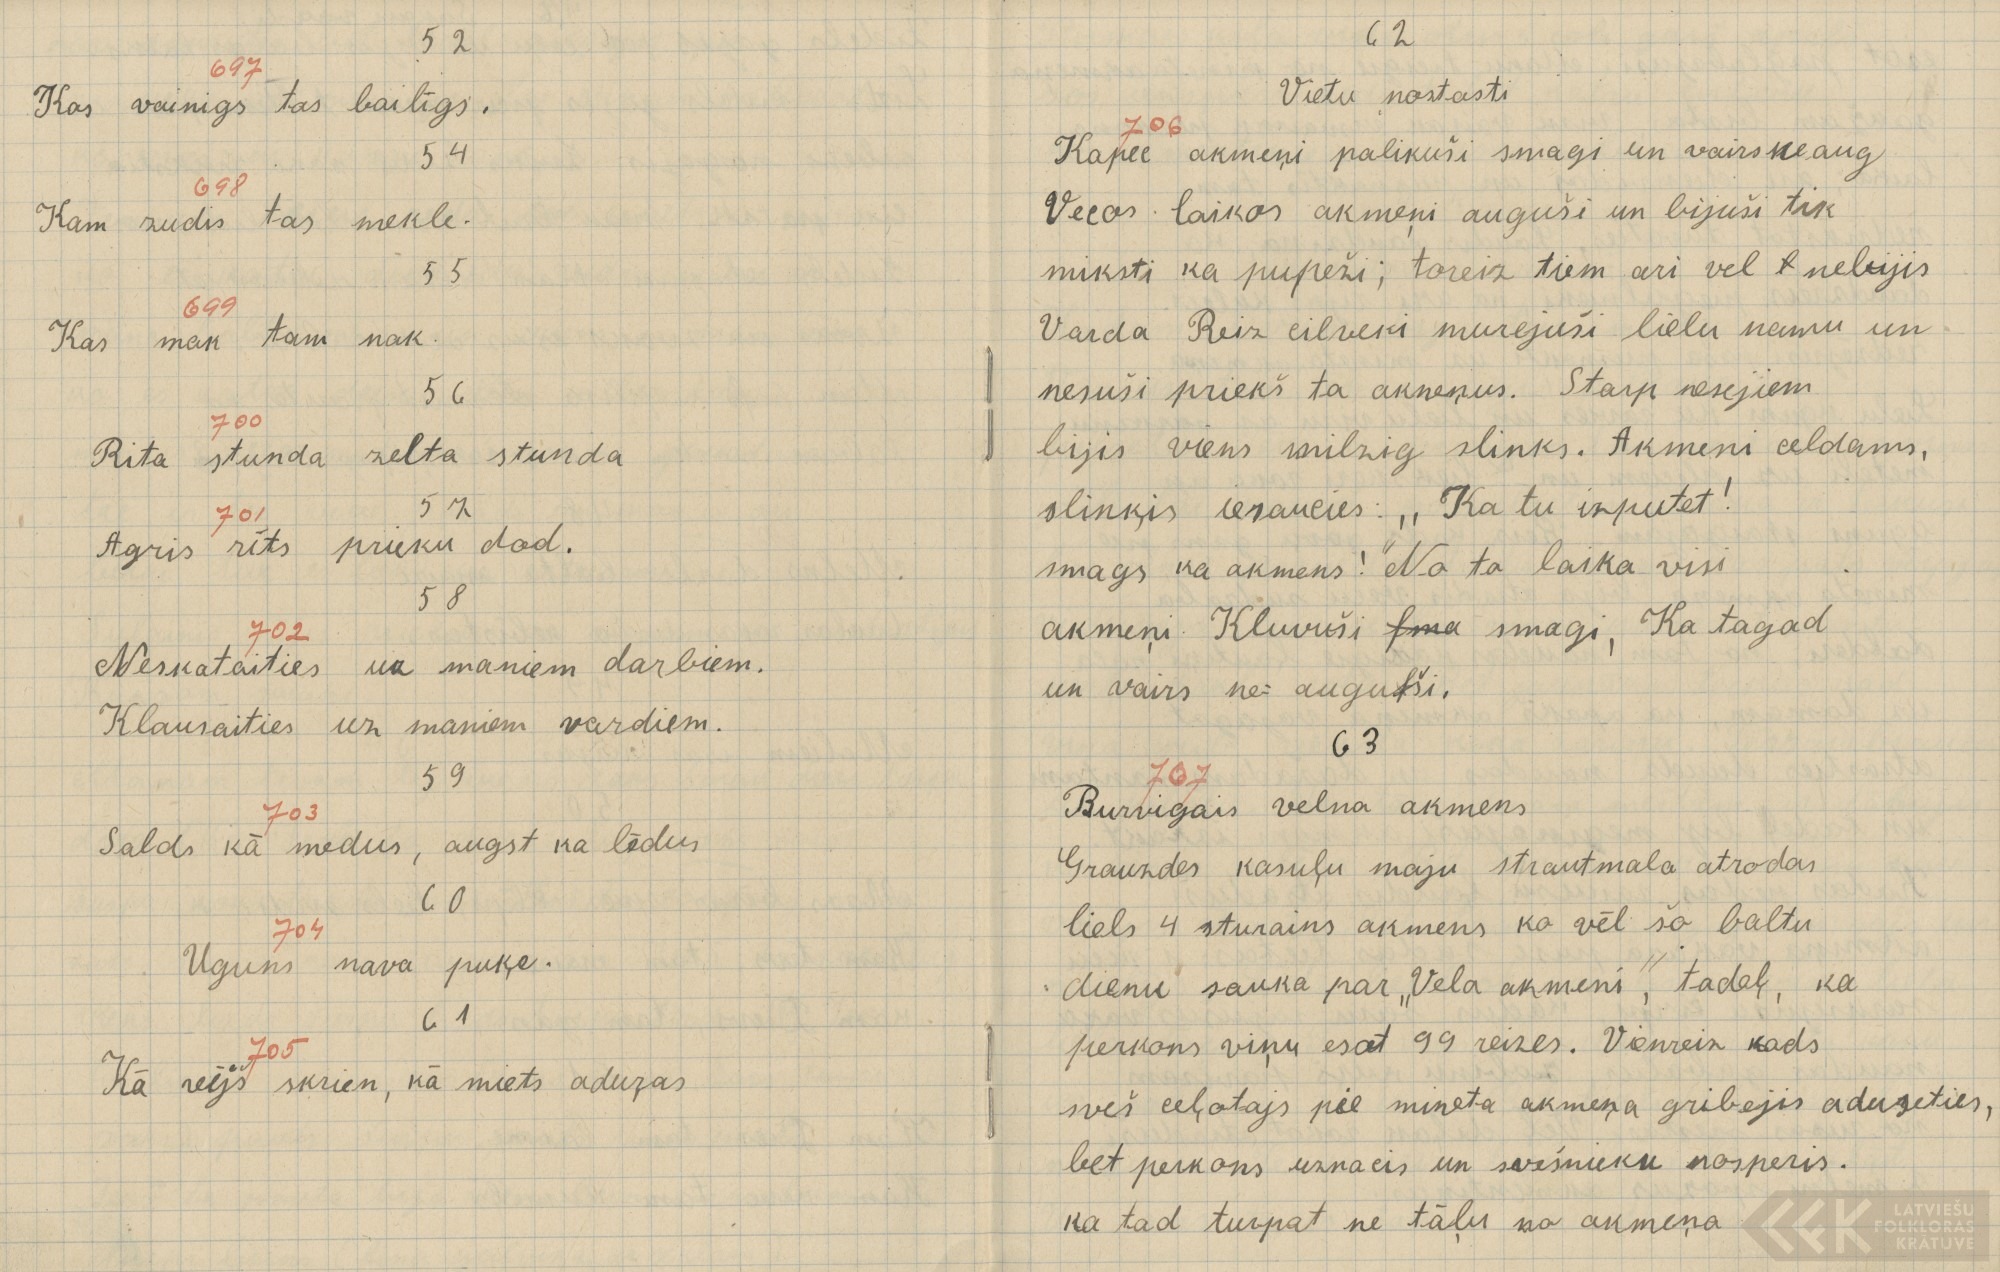 52
697
Kas vainigs tas bailīgs.
54
698
Kam zudis tas mekle.
55
699
Kas mak tam nak.
56
700
Rita stunda zelta stunda
57
701
Agris rīts prieku dod.
58
702
Neskataities uz maniem darbiem.
Klausaities uz maniem vardiem.
59
703
Salds kā medus, augst ka lēdus
60
704
Uguns nava puķe.
61
705
Kā vējš skrien, kā miets aduras
62
Vietu nostasti
706
Kapec akmeņi palikuši smagi un vairs neaug
Vecos laikos akmeņi auguši un bijuši tik
miksti ka pupeži; toreiz tiem ari vel nebijis
Varda Reiz cilveki murejuši lielu namu un
nesuši priekš ta akmeņus. Starp nesejiem
bijis viens milzig slinks. Akmeni celdams,
slinķis iesaucies: „Ka tu izputet!
smags ka akmens!" No ta laika visi
akmeņi Kluvuši sma smagi, Ka tagad
un vairs ne auguši.
63
707
Burvigais velna akmens
Grauzdes kasuļu maju strautmala atrodas
liels 4 sturains akmens ko vēl šo baltu
dienu sauka par „Vela akmeni", tadeļ, ka
perkons viņu esot 99 reizes. Vienreiz kads
sveš ceļotajs pie mineta akmeņa gribejis aduseties,
bet perkons uznacis un svešnieku nosperis.
ka tad turpat ne tāļu no akmeņa
LATVIEŠU
FOLKLORAS
KRĀTUVE